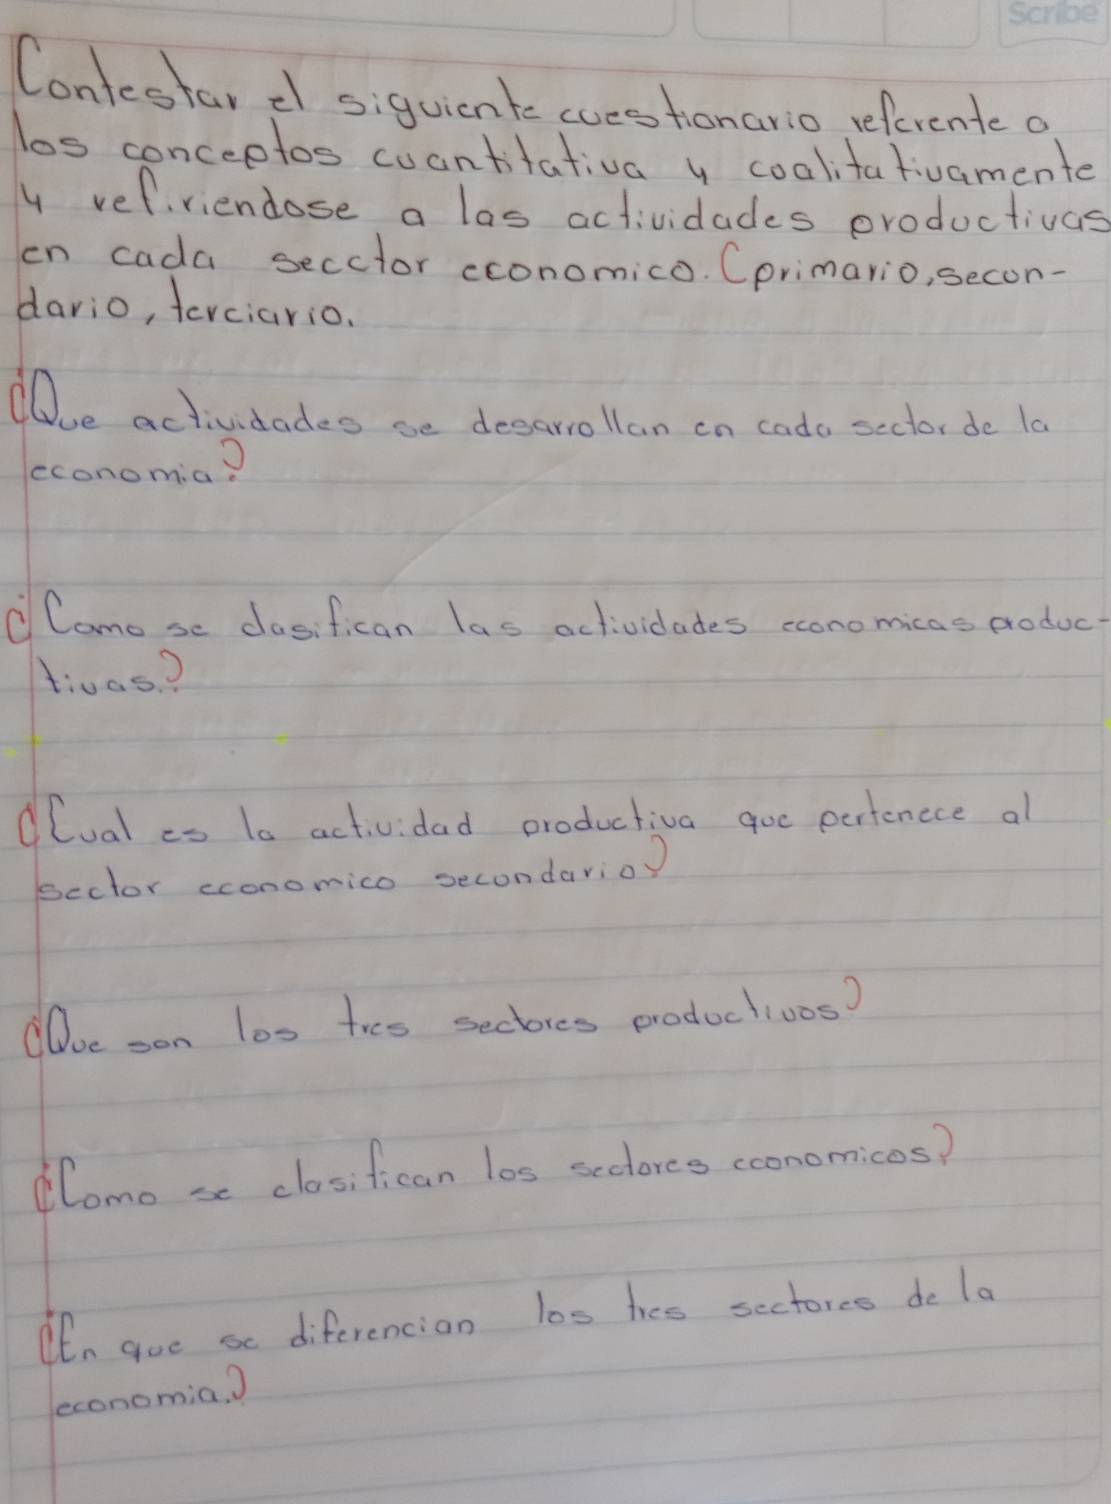 Scribe
Contestar el siguiente cuestionario referente a
los conceptos cuantitativa y coalitativamente
y refiriendose a las actividades productivas
en cada secctor economico. (primario, secon-
dario, terciario.
¿Que actividades se desarrollan en cada sector de la
economia?
¿Como se clasifican las actividades economicas produc-
tivas.?
¿Cual es la actividad productiva que pertenece al
sector economico secondario?
¿Que son los tres sectores productivos?
¿Como se clasifican los sectores economicos?
¿En que se diferencian los tres sectores de la
economia.?